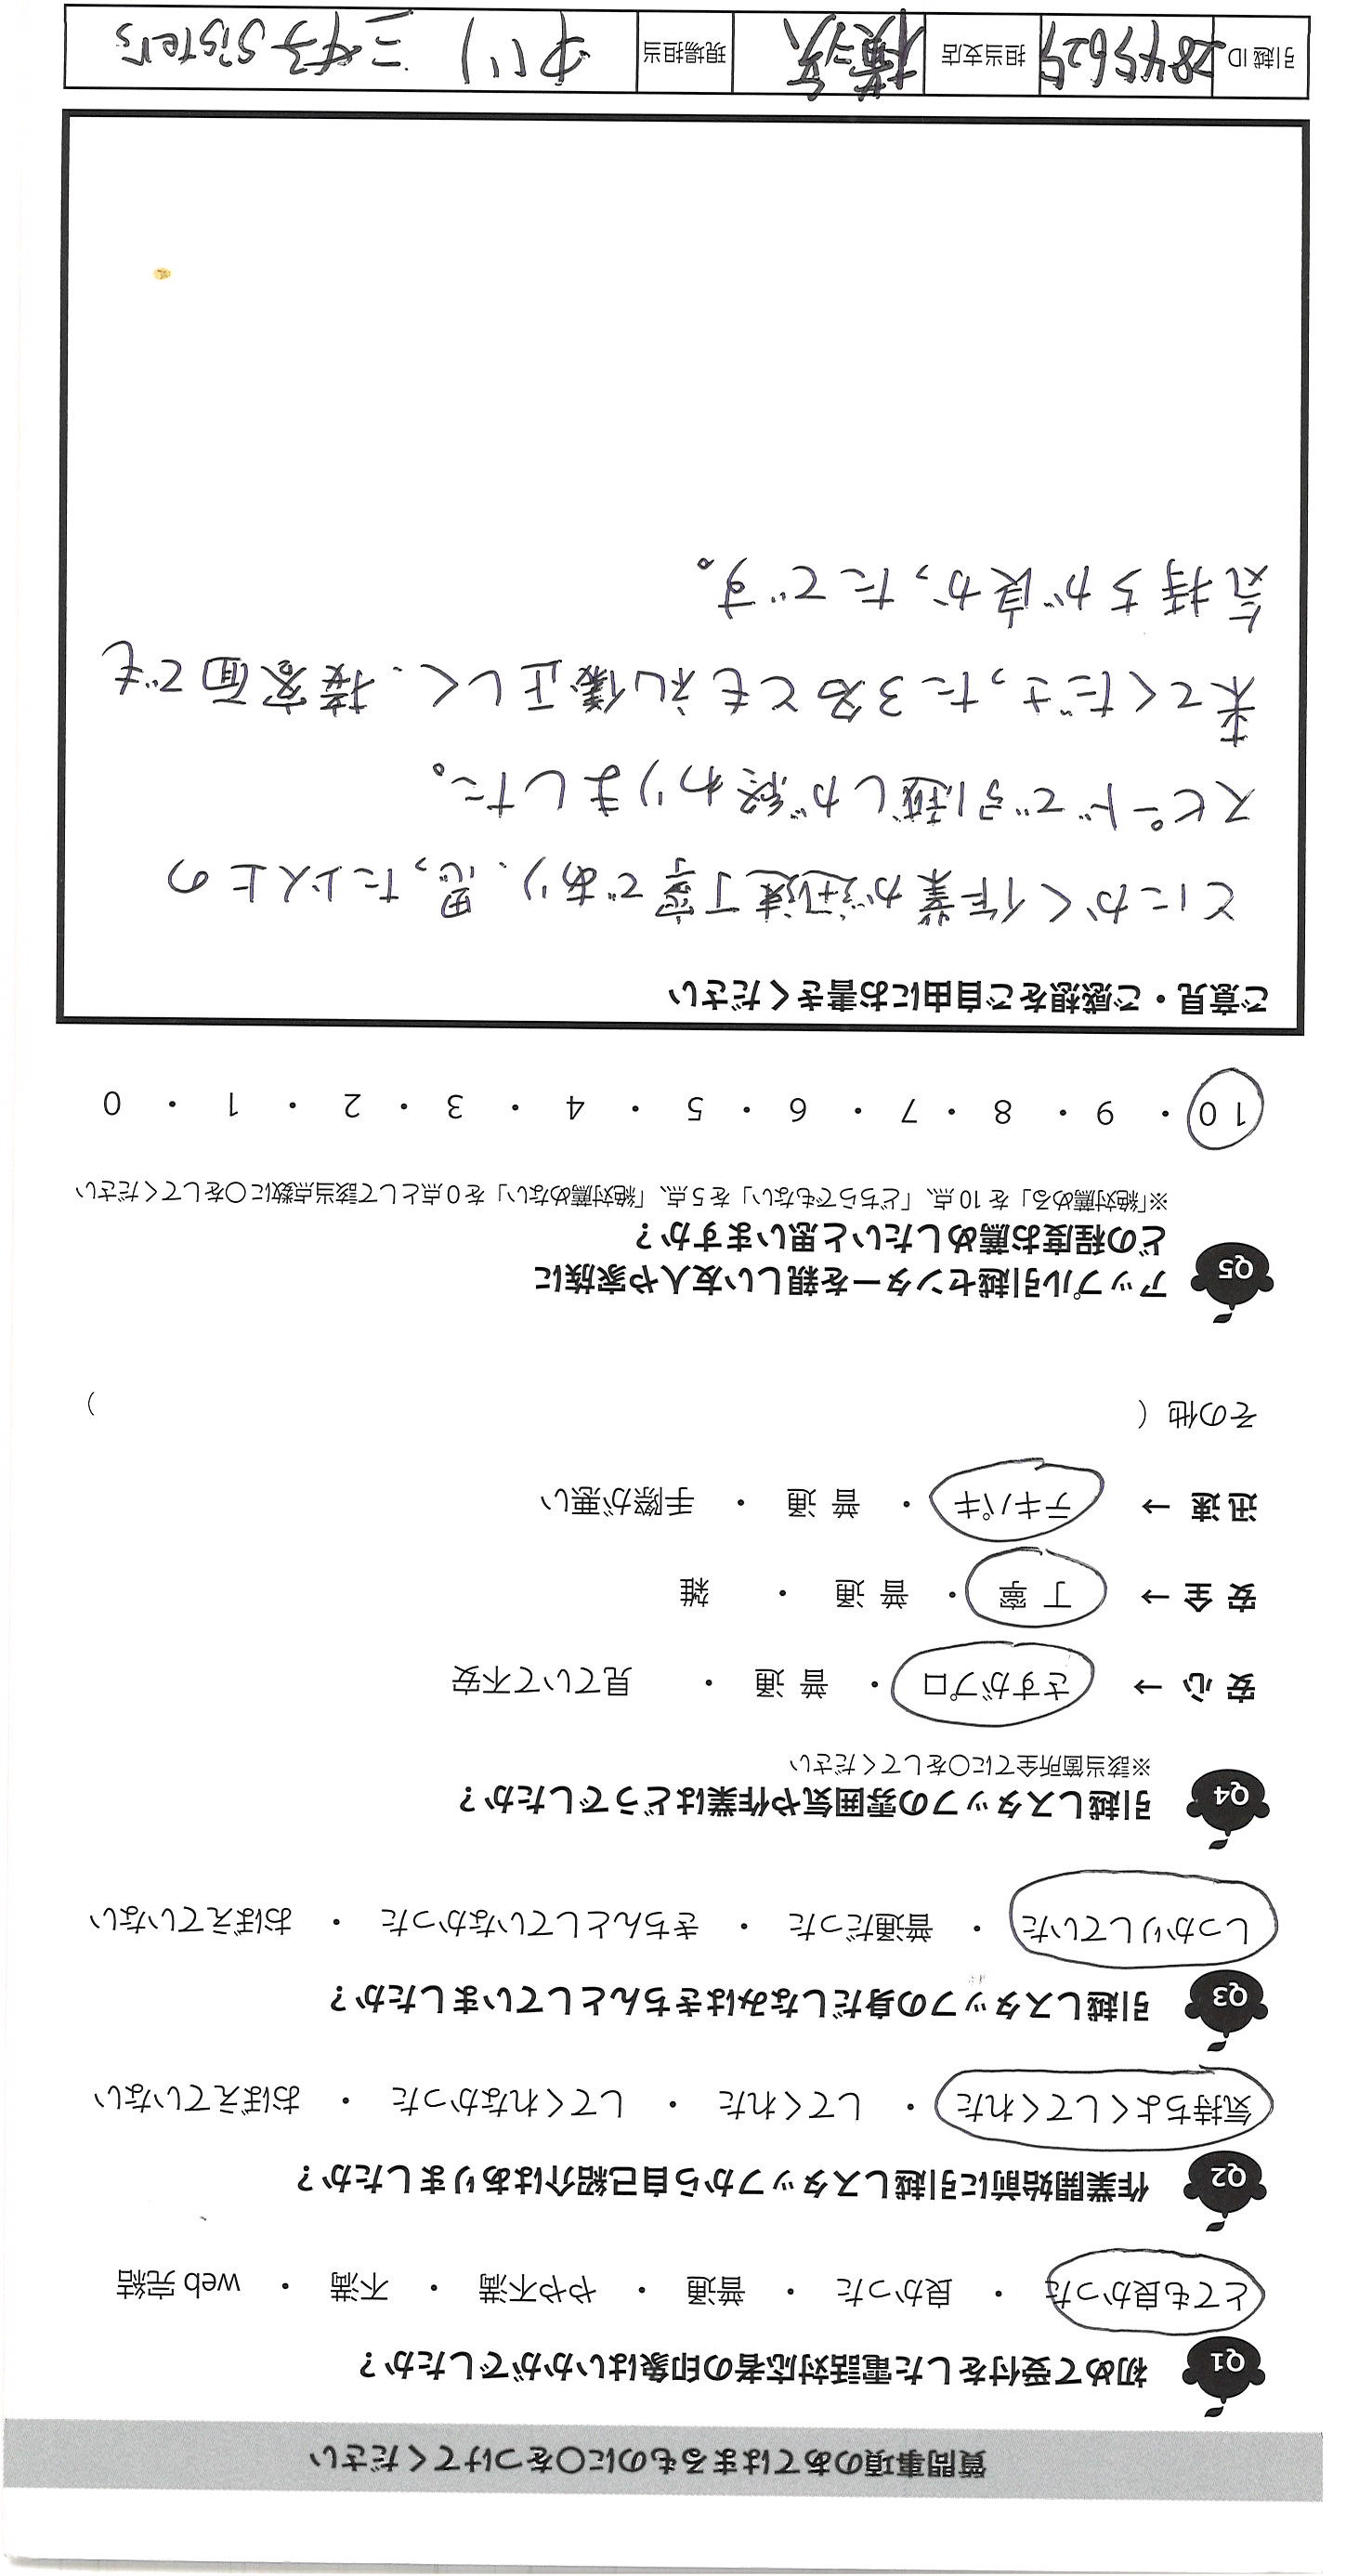 質問事項のあてはまるものに〇をつけてください
Q1 初めて受付をした電話対応者の印象はいかがでしたか？
とても良かった ・ 良かった ・ 普通 ・ やや不満 ・ 不満 ・ web 完結
Q2 作業開始前に引越しスタッフから自己紹介はありましたか？
気持ちよくしてくれた ・ してくれた ・ してくれなかった ・ おぼえていない
Q3 引越しスタッフの身だしなみはきちんとしていましたか？
しっかりしていた ・ 普通だった ・ きちんとしていなかった ・ おぼえていない
Q4 引越しスタッフの雰囲気や作業はどうでしたか？
※該当箇所全てに〇をしてください
安 心 → さすがプロ ・ 普 通 ・ 見ていて不安
安 全 → 丁 寧 ・ 普 通 ・ 雑
迅 速 → テキパキ ・ 普 通 ・ 手際が悪い
その他（ ）
Q5 アップル引越センターを親しい友人や家族に
どの程度お薦めしたいと思いますか？
※「絶対薦める」を 10 点、「どちらでもない」を 5 点、「絶対薦めない」を 0 点として該当点数に〇をしてください
10 ・ 9 ・ 8 ・ 7 ・ 6 ・ 5 ・ 4 ・ 3 ・ 2 ・ 1 ・ 0
ご意見・ご感想をご自由にお書きください
とにかく作業が迅速丁寧であり、思った以上の
スピードで引越しが終わりました。
来てくださった3名とも礼儀正しく、接客面でも
気持ちが良かったです。
引越 ID 2845625 担当支店 横浜 現場担当 中川 三好sisters